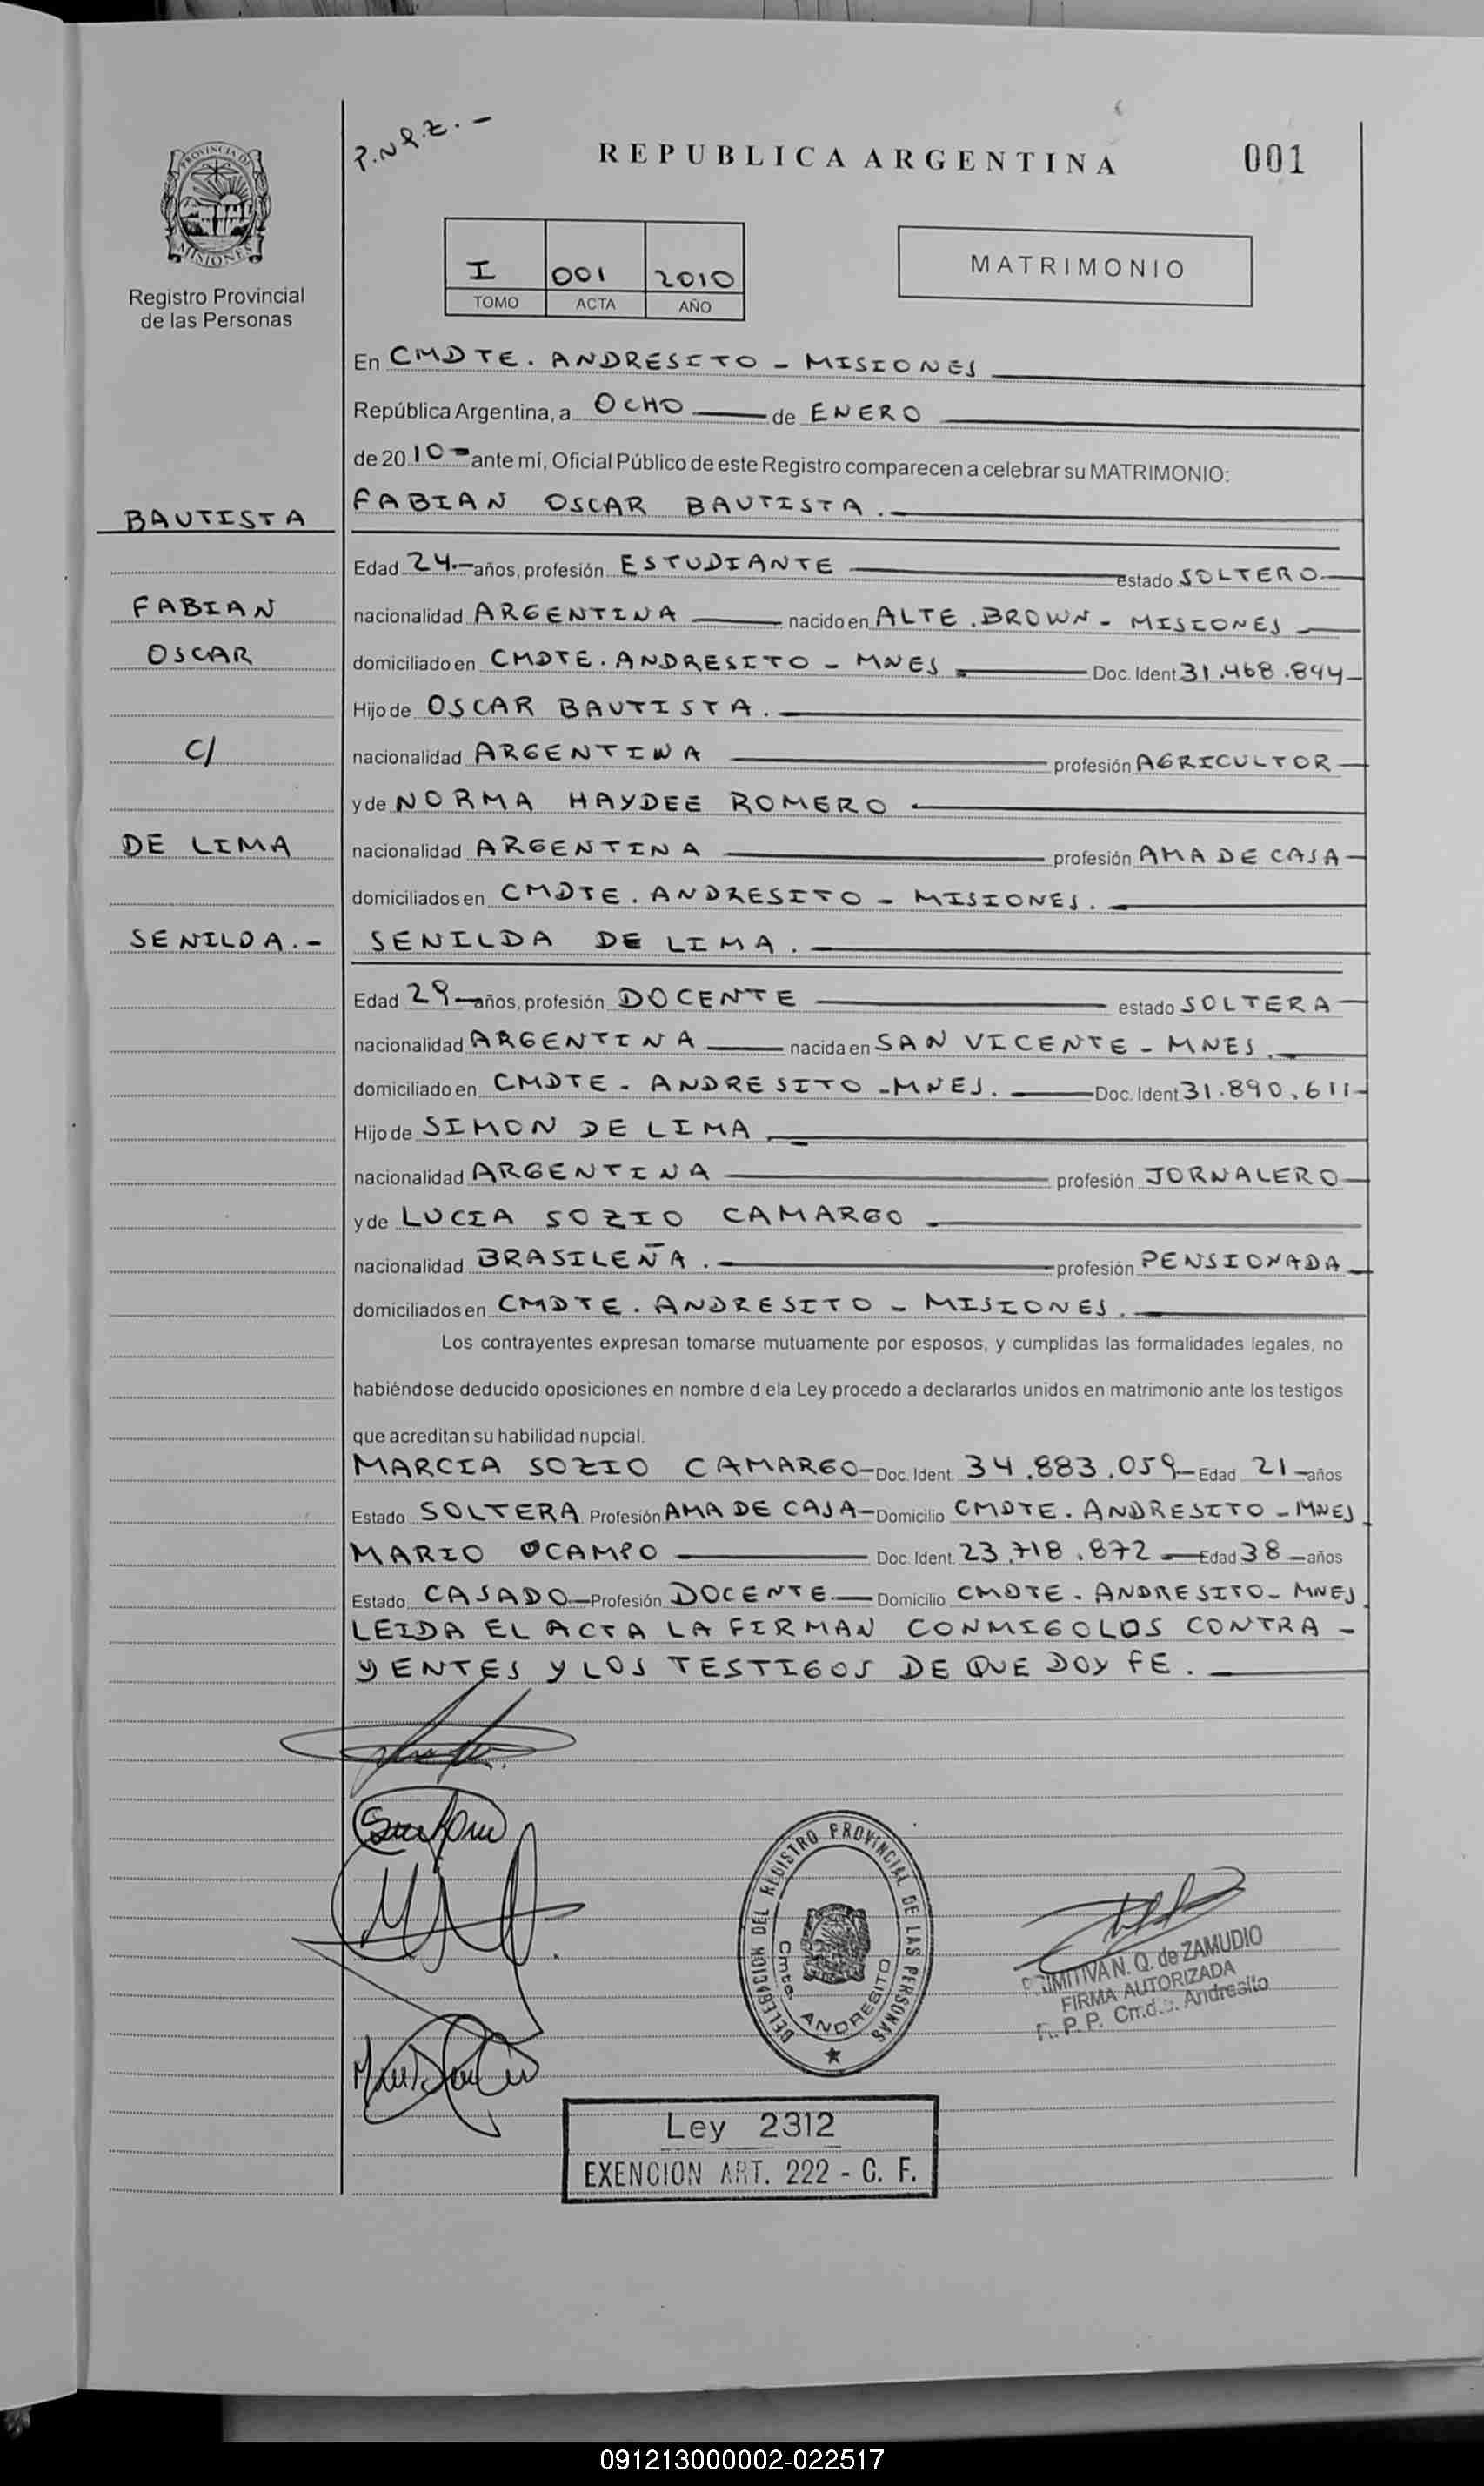 P.N.R.Z.-
REPUBLICA ARGENTINA
001
PROVINCIA DE
MISIONES
Registro Provincial
de las Personas
I 001 2010
TOMO ACTA AÑO
MATRIMONIO
En CMDTE. ANDRESITO - MISIONES
República Argentina, a OCHO de ENERO
de 2010 - ante mi, Oficial Público de este Registro comparecen a celebrar su MATRIMONIO:
BAUTISTA
FABIAN OSCAR BAUTISTA.
Edad 24.- años, profesión ESTUDIANTE estado SOLTERO
FABIAN
nacionalidad ARGENTINA nacido en ALTE. BROWN - MISIONES
OSCAR
domiciliado en CMDTE. ANDRESITO - MNES Doc. Ident. 31.468.844
Hijo de OSCAR BAUTISTA.
C/
nacionalidad ARGENTINA profesión AGRICULTOR
y de NORMA HAYDEE ROMERO
DE LIMA
nacionalidad ARGENTINA profesión AMA DE CASA
domiciliados en CMDTE. ANDRESITO - MISIONES.
SENILDA.-
SENILDA DE LIMA.
Edad 29 años, profesión DOCENTE estado SOLTERA
nacionalidad ARGENTINA nacida en SAN VICENTE - MNES.
domiciliado en CMDTE - ANDRESITO - MNES. Doc. Ident. 31.890.611
Hijo de SIMON DE LIMA
nacionalidad ARGENTINA profesión JORNALERO
y de LUCIA SOZIO CAMARGO
nacionalidad BRASILEÑA. profesión PENSIONADA
domiciliados en CMDTE. ANDRESITO - MISIONES.
Los contrayentes expresan tomarse mutuamente por esposos, y cumplidas las formalidades legales, no
habiéndose deducido oposiciones en nombre d ela Ley procedo a declararlos unidos en matrimonio ante los testigos
que acreditan su habilidad nupcial.
MARCIA SOZIO CAMARGO - Doc. Ident. 34.883.059 - Edad 21 - años
Estado SOLTERA Profesión AMA DE CASA - Domicilio CMDTE. ANDRESITO - MNES
MARIO OCAMPO Doc. Ident. 23.718.872 - Edad 38 - años
Estado CASADO - Profesión DOCENTE - Domicilio CMDTE - ANDRESITO - MNES
LEIDA EL ACTA LA FIRMAN CONMIGO LOS CONTRA -
YENTES Y LOS TESTIGOS DE QUE DOY FE.
DELEGACION DEL REGISTRO PROVINCIAL DE LAS PERSONAS
Cmte. ANDRESITO
PRIMITIVA N. Q. de ZAMUDIO
FIRMA AUTORIZADA
R. P. P. Cmdte. Andresito
Ley 2312
EXENCION ART. 222 - C. F.
091213000002-022517